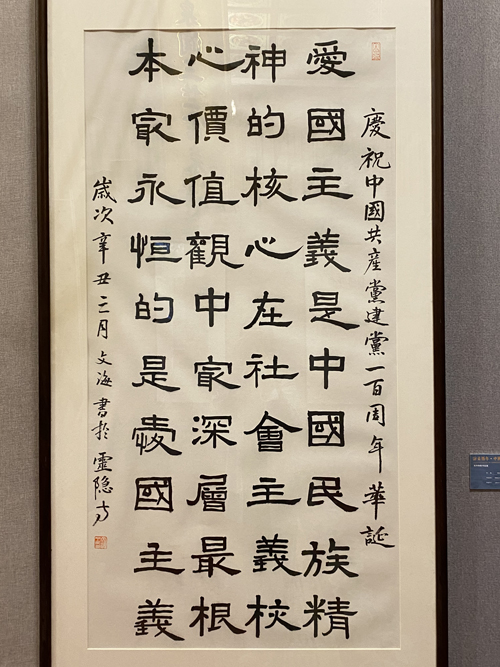 慶祝中國共産黨建黨一百周年華誕
愛國主義是中國民族精
神的核心在社會主義核
心價值觀中㝡深層最根
本㝡永恒的是愛國主義
歲次辛丑三月文海書於靈隐寺